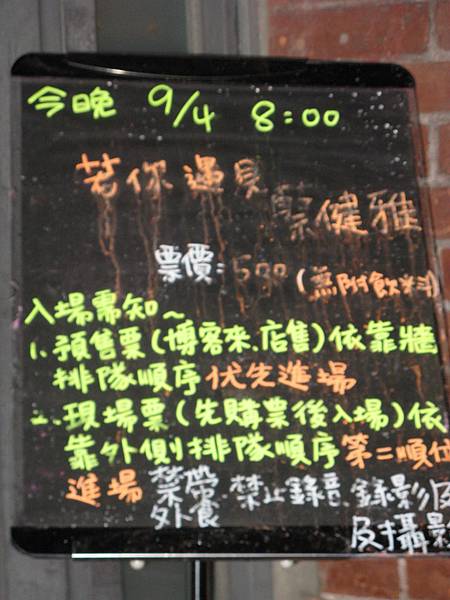 今晚 9/4 8:00
若你遇見
蔡健雅
票價:500(無附飲料)
入場需知~
1.預售票(博客來.店售)依靠牆
排隊順序优先進場
2.現場票(先購票後入場)依
靠外側排隊順序第二順位
進場 禁帶 禁止錄音.錄影及
外食 及攝影